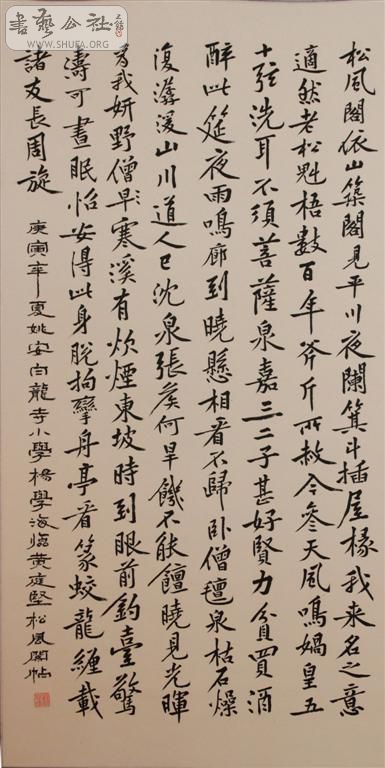 書藝公社
WWW.SHUFA.ORG
松風閣依山築閣見平川夜闌箕斗插屋椽我來名之意
適然老松魁梧數百年斧斤所赦今參天風鳴媧皇五
十弦洗耳不須菩薩泉嘉三二子甚好賢力貧買酒
醉此筵夜雨鳴廊到曉懸相看不歸臥僧氈泉枯石燥
復潺湲山川道人已沈泉張侯何旱饑不能饘曉見光暉
為我妍野僧旱寒溪有炊煙東坡時到眼前釣臺驚
濤可晝眠怡安得此身脫拘攣舟亭看篆蛟龍纏載
諸友長周旋
庚寅年夏姚安白龍寺小學楊學海臨黃庭堅松風閣帖